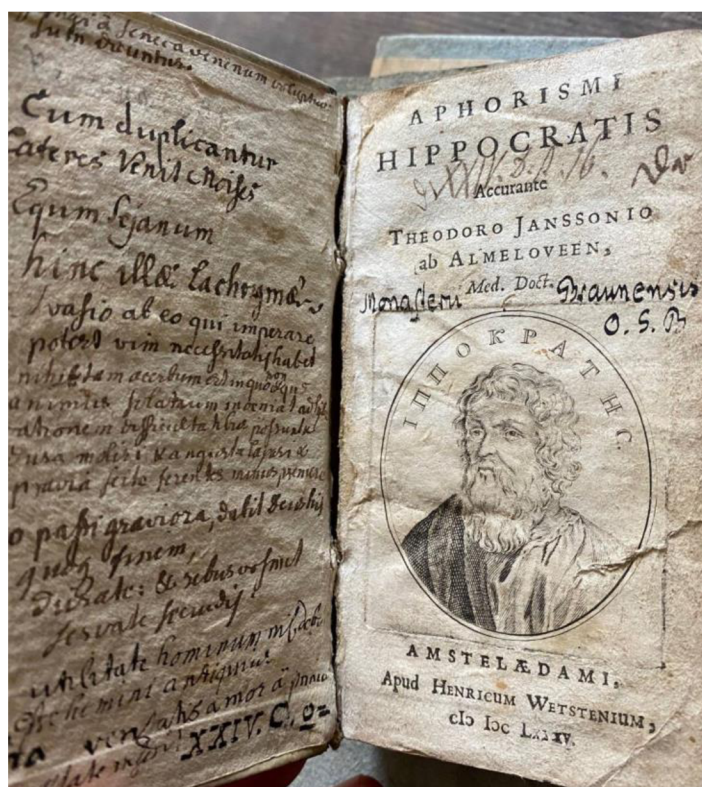 Seneca venenum
sum
Cum duplicantur
lateres Venit Moises
Equum Sejanum
hinc illæ Lachrymæ
vasio ab eo qui imperare
potest vim necessitatis habet
nihil tam acerbum est in quo non æquus
animus solatium inveniat
rationem difficultatibus possunt
dura molliri & angusta laxari &
gravia scite ferentes minus premere
o passi graviora, dabit Deus his
quoq finem,
durate: & rebus vosmet
servate secundis
utilitate hominum
esse homini antiquius
veritatis amor
XXIV. C. 2
APHORISMI
HIPPOCRATIS
Accurante
THEODORO JANSSONIO
ab ALMELOVEEN,
Med. Doct.
Monasterii Braunensis
O. S. B
ΙΠΠΟΚΡΑΤΗϹ
AMSTELÆDAMI,
Apud HENRICUM WETSTENIUM,
cIɔ Iɔc LXXXV.